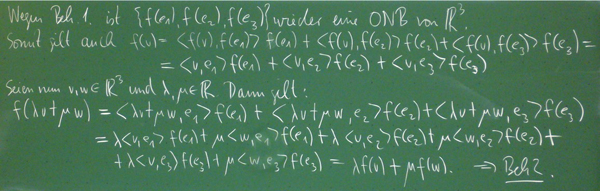 Wegen Beh. 1. ist {f(e₁), f(e₂), f(e₃)} wieder eine ONB von ℝ³.
Somit gilt auch f(v) = <f(v), f(e₁)> f(e₁) + <f(v), f(e₂)> f(e₂) + <f(v), f(e₃)> f(e₃) =
= <v, e₁> f(e₁) + <v, e₂> f(e₂) + <v, e₃> f(e₃)
Seien nun v, w ∈ ℝ³ und λ, μ ∈ ℝ. Dann gilt:
f(λv + μw) = <λv + μw, e₁> f(e₁) + <λv + μw, e₂> f(e₂) + <λv + μw, e₃> f(e₃)
= λ<v, e₁> f(e₁) + μ<w, e₁> f(e₁) + λ<v, e₂> f(e₂) + μ<w, e₂> f(e₂) +
+ λ<v, e₃> f(e₃) + μ<w, e₃> f(e₃) = λf(v) + μf(w). ⇒ Beh 2.